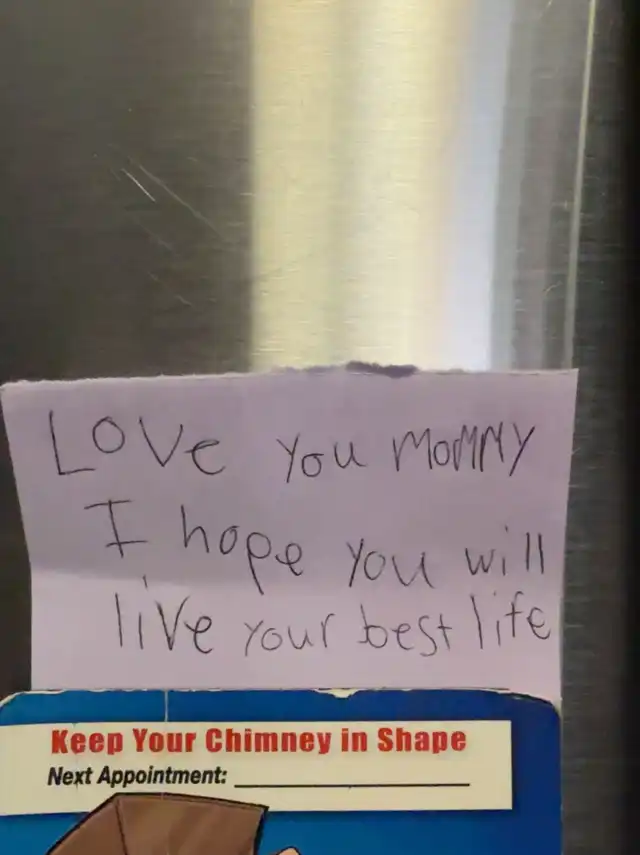 Love you Mommy
I hope you will
live your best life
Keep Your Chimney in Shape
Next Appointment: